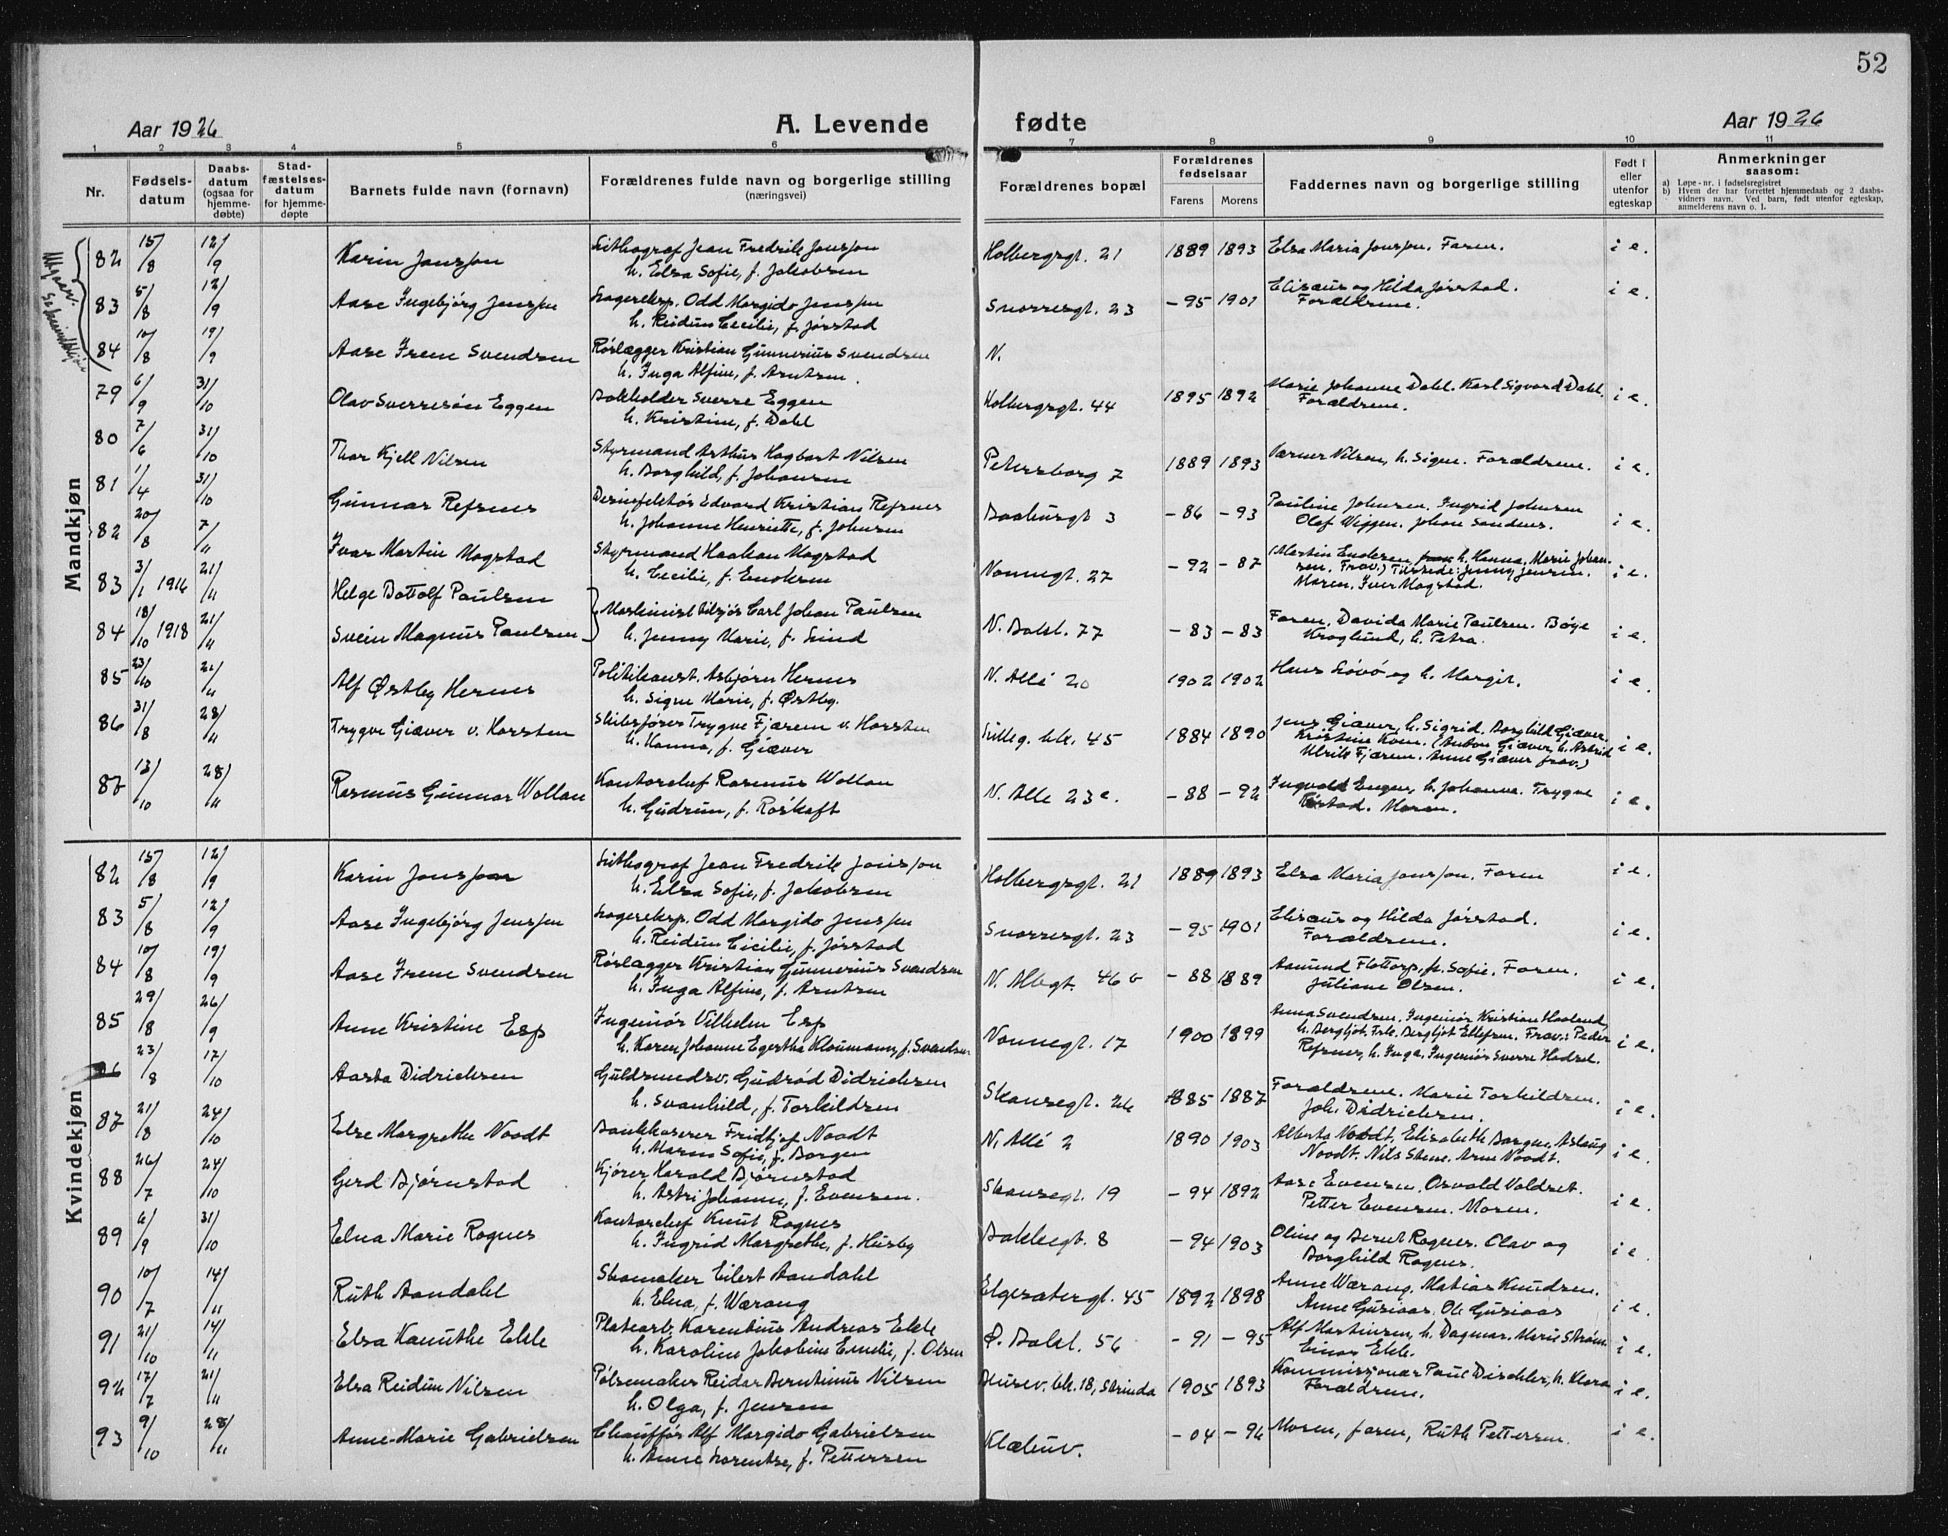 52
Aar 1926
A. Levende fødte
Aar 1926
1 2 3 4 5 6 7 8 9 10 11
Nr.
Fødsels-
datum
Daabs-
datum
(ogsaa for
hjemme-
døbte)
Stad-
fæstelses-
datum
for hjemme-
døpte
Barnets fulde navn (fornavn)
Forældrenes fulde navn og borgerlige stilling
(næringsvei)
Forældrenes bopæl
Forældrenes
fødselsaar
Farens Morens
Faddernes navn og borgerlige stilling
Født i
eller
utenfor
egteskap
Anmerkninger
saasom:
a) Løpe-nr. i fødselsregistret
b) Hvem der har forrettet hjemmedaab og 2 daabs-
vidners navn. Ved barn, født utenfor egteskap,
anmelderens navn o. l.
Mandkjøn
82 15/8 12/9 Karin Jonsson Lithograf Jean Fredrik Jonsson Holbergsgt. 21 1889 1893 Elsa Maria Jonsson. Faren. i e.
h. Elsa Sofie, f. Jakobsen
83 5/8 12/9 Aase Ingebjørg Jenssen Lagereksp. Odd Margido Jenssen Snorresgt. 23 -95 1901 Elisæus og Hilda Jørstad. i e.
h. Reidun Cecilie, f. Jørstad Forældrene.
84 10/8 19/9 Aase Irene Svendsen Rørlægger Kristian Gunnerius Svendsen N.
h. Inga Alfine, f. Arntsen.
79 6/9 31/10 Olav Sverresøn Eggen Bokholder Sverre Eggen Holbergsgt. 44 1895 1892 Marie Johanne Dahl. Karl Sigvard Dahl. i e.
h. Kristine, f. Dahl Forældrene.
80 7/6 31/10 Thor Kjell Nilsen Styrmand Arthur Hagbart Nilsen Petersborg 7 1889 1893 Varner Nilsen, h. Signe. Forældrene. i e.
h. Borghild, f. Johansen
81 1/4 31/10 Gunnar Refsnes Desinfektør Edvard Kristian Refsnes Baahusgt 3 -86 -93 Pauline Johnsen, Ingrid Johnsen i e.
h. Johanne Henriette, f. Johnsen Olaf Viggen. Johan Sandnes.
82 20/8 7/11 Ivar Martin Mogstad Styrmand Haakon Mogstad Vonnegt. 27 -92 -87 (Martin Enoksen h. Hanna, Marie Johan- i e.
h. Cecilie, f. Enoksen sen. Frav.) Tilstede: Jenny Jensen.
Moren, Iver Mogstad.
83 3/1 1916 21/11 Helge Bottolf Paulsen Maskinist Carl Johan Paulsen
84 18/10 1918 21/11 Svein Magnus Paulsen h. Jenny Marie, f. Lund N. Bakl. 77 -83 -83 Faren. Davida Marie Paulsen. Bøye i e.
Kroglund, h. Petra.
85 23/10 21/11 Alf Østby Hernes Politikonst. Asbjørn Hernes N. Allé 20 1902 1902 Hans Løvø og h. Margit. i e.
h. Signe Marie, f. Østby.
86 31/8 28/11 Trygve Giæver v. Karsten Skibsfører Trygve Fjærem v. Karsten Lilleg. bk. 45 1884 1890 Jens Giæver, h. Sigrid. Borghild Giæver. i e.
h. Hanna, f. Giæver Kristine Kven. (Anton Giæver, h. Astrid
Ulrik Fjærem. Anne Giæver frav.)
87 13/10 28/11 Rasmus Gunnar Wollan Kontorchef Rasmus Wollan N. Alle 23 c. -88 -92 Ingvald Engen, h. Johanna. Trygve i e.
h. Gudrun, f. Roskaft Moren.
Kvindekjøn
82 15/8 12/9 Karin Jonsson Lithograf Jean Fredrik Jonsson Holbergsgt. 21 1889 1893 Elsa Maria Jonsson. Faren i e.
h. Elsa Sofie, f. Jakobsen
83 5/8 12/9 Aase Ingebjørg Jenssen Lagereksp. Odd Margido Jenssen Snorresgt. 23 -95 1901 Elisæus og Hilda Jørstad. i e.
h. Reidun Cicilie, f. Jørstad Forældrene.
84 10/8 19/9 Aase Irene Svendsen Rørlægger Kristian Gunnerius Svendsen N. Albgt. 46 b -88 1889 Aamund Flottorp, h. Sofie. Faren. i e.
h. Inga Alfine, f. Arntsen Juliane Olsen.
85 29/8 26/9 Anne Kristine Esp Ingeniør Vilhelm Esp Vonnegt. 17 1900 1899 Anna Svendsen. Ingeniør Kristian Haaland, i e.
h. Karen Johanne Egertha Kloumann, f. Svendsen h. Bergljot. Frk. Bergljot Ellefsen. Frav.: Peder
Refsnes, h. Inga. Ingeniør Sverre Hadsel.
86 23/8 17/10 Aasta Didrichsen Guldsmedsv. Gudrød Didrichsen Skansegt. 26 1885 1887 Forældrene. Marie Torkildsen. i e.
h. Svanhild, f. Torkildsen Joh. Didrichsen.
87 21/8 24/10 Else Margrethe Noodt Bankkaserer Fridtjof Noodt N. Allé 2 1890 1903 Alberta Noodt, Elisabeth Borgen, Aslaug i e.
h. Maren Sofie, f. Borgen Noodt. Nils Stene. Arne Noodt.
88 26/7 24/10 Gerd Bjørnstad Kjører Harald Bjørnstad Skansegt. 19 -94 1892 Aase Evensen. Osvald Voldset. i e.
h. Astri Johanne, f. Evensen. Petter Evensen. Moren.
89 6/9 31/10 Elna Marie Rognes Kontorchef Knut Rognes Bakkegt. 8 -94 1903 Oline og Bernt Rognes. Olav og i e.
h. Ingrid Margrethe, f. Husby Borghild Rognes.
90 10/7 14/11 Ruth Aandahl Skomaker Eilert Aandahl Elgesætergt. 45 1892 1898 Anne Wærang. Matias Knudsen. i e.
h. Elna, f. Wærang Anne Gusiaas. Ole Gusiaas
91 21/10 14/11 Elsa Kanuthe Ekle Platearb. Karentius Andreas Ekle Ø. Bakl. 56 -91 -95 Alf Martinsen, h. Dagmar. Marie Strøm. i e.
h. Karoline Jakobine Emelie, f. Olsen Einar Ekle.
92 17/7 21/11 Elsa Reidun Nilsen Pølsemaker Reidar Berntinus Nilsen Beusev. bk. 18, Strinda 1905 1893 Kommissionær Paul Dischler, h. Klara i e.
h. Olga, f. Jensen Forældrene.
93 9/10 28/11 Anne-Marie Gabrielsen Chauffør Alf Margido Gabrielsen Klæbuv. -04 -96 Moren, faren, Ruth Pettersen. i e.
h. Anne Lorentse, f. Pettersen